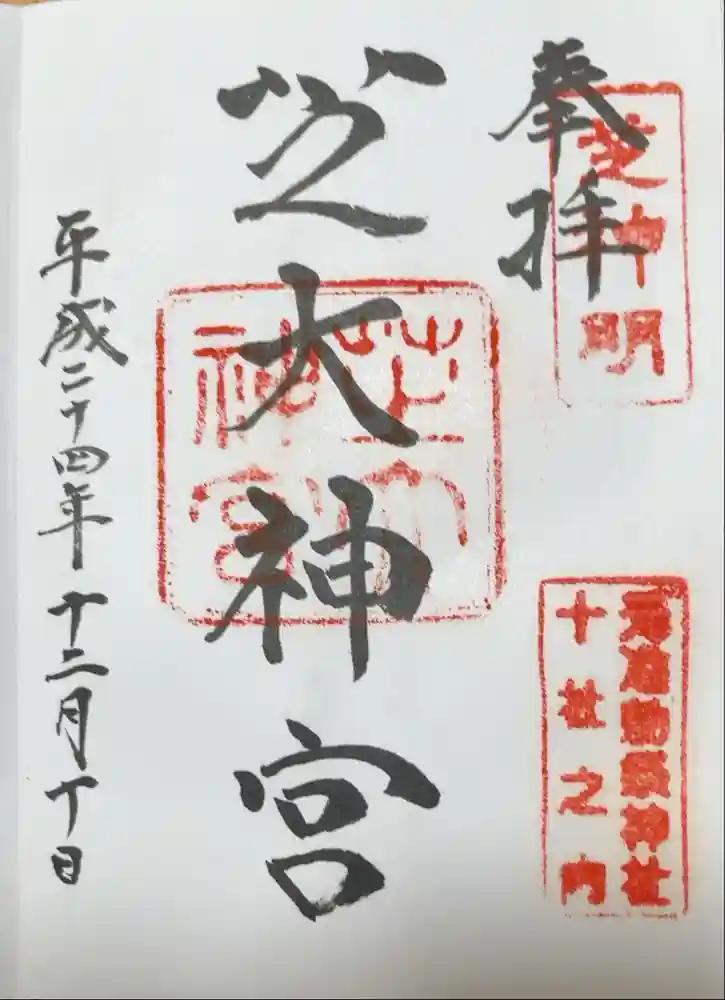 奉拝
芝神明
元准勅祭神社
十社之内
芝大神宮
芝大神宮
平成二十四年十二月十日